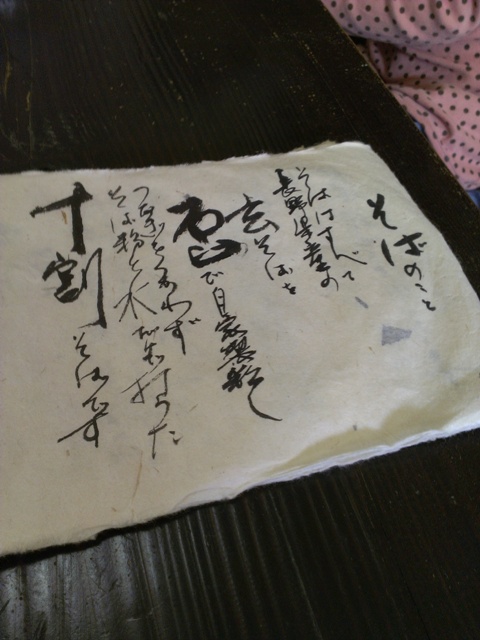 そばのこと
そばはすべて
長野県産の
玄そばを
石臼で自家製粉し
つなぎをつかわず
そば粉と水だけで打った
十割そばです